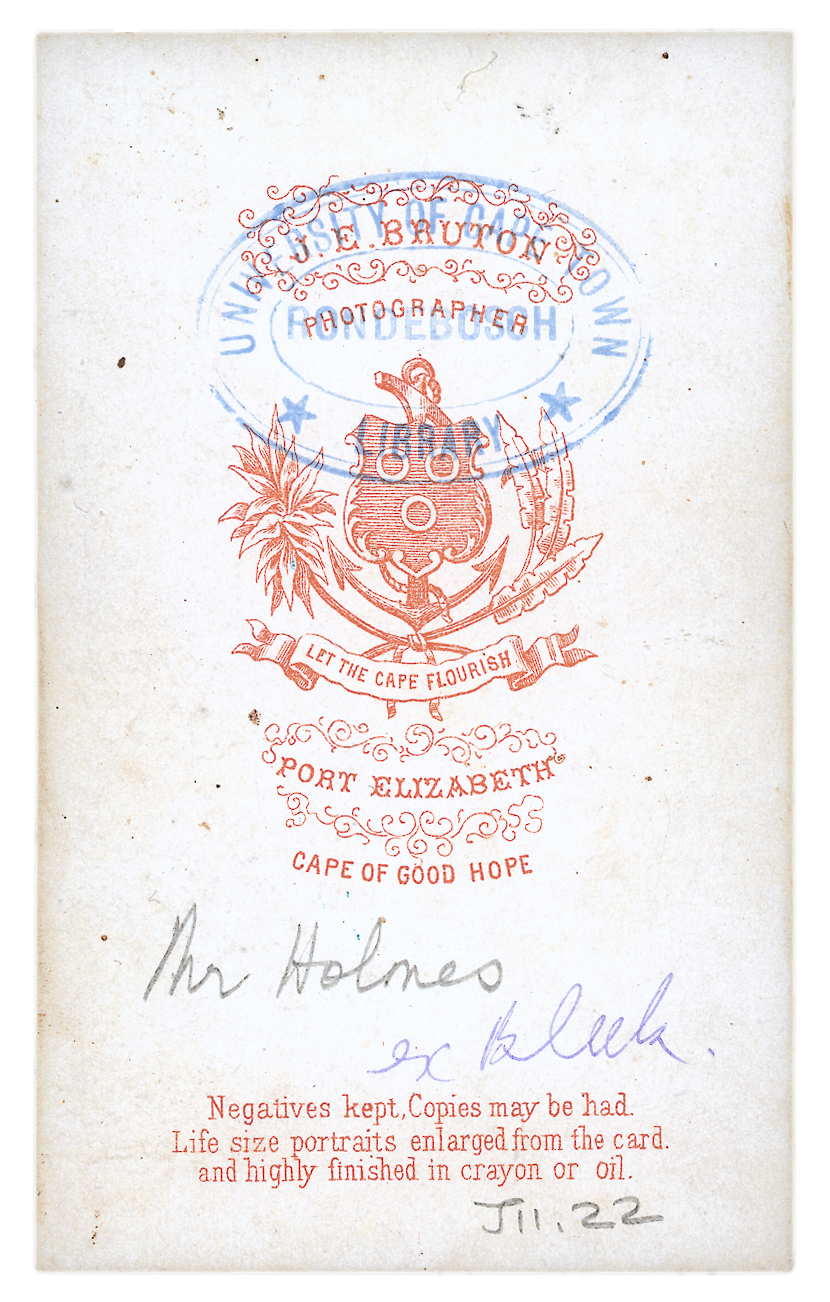 UNIVERSITY OF CAPE TOWN
J. E. BRUTON
PHOTOGRAPHER
RONDEBOSCH
LIBRARY
LET THE CAPE FLOURISH
PORT ELIZABETH
CAPE OF GOOD HOPE
Mr Holmes
ex Bleek.
Negatives kept, Copies may be had.
Life size portraits enlarged from the card.
and highly finished in crayon or oil.
J11.22